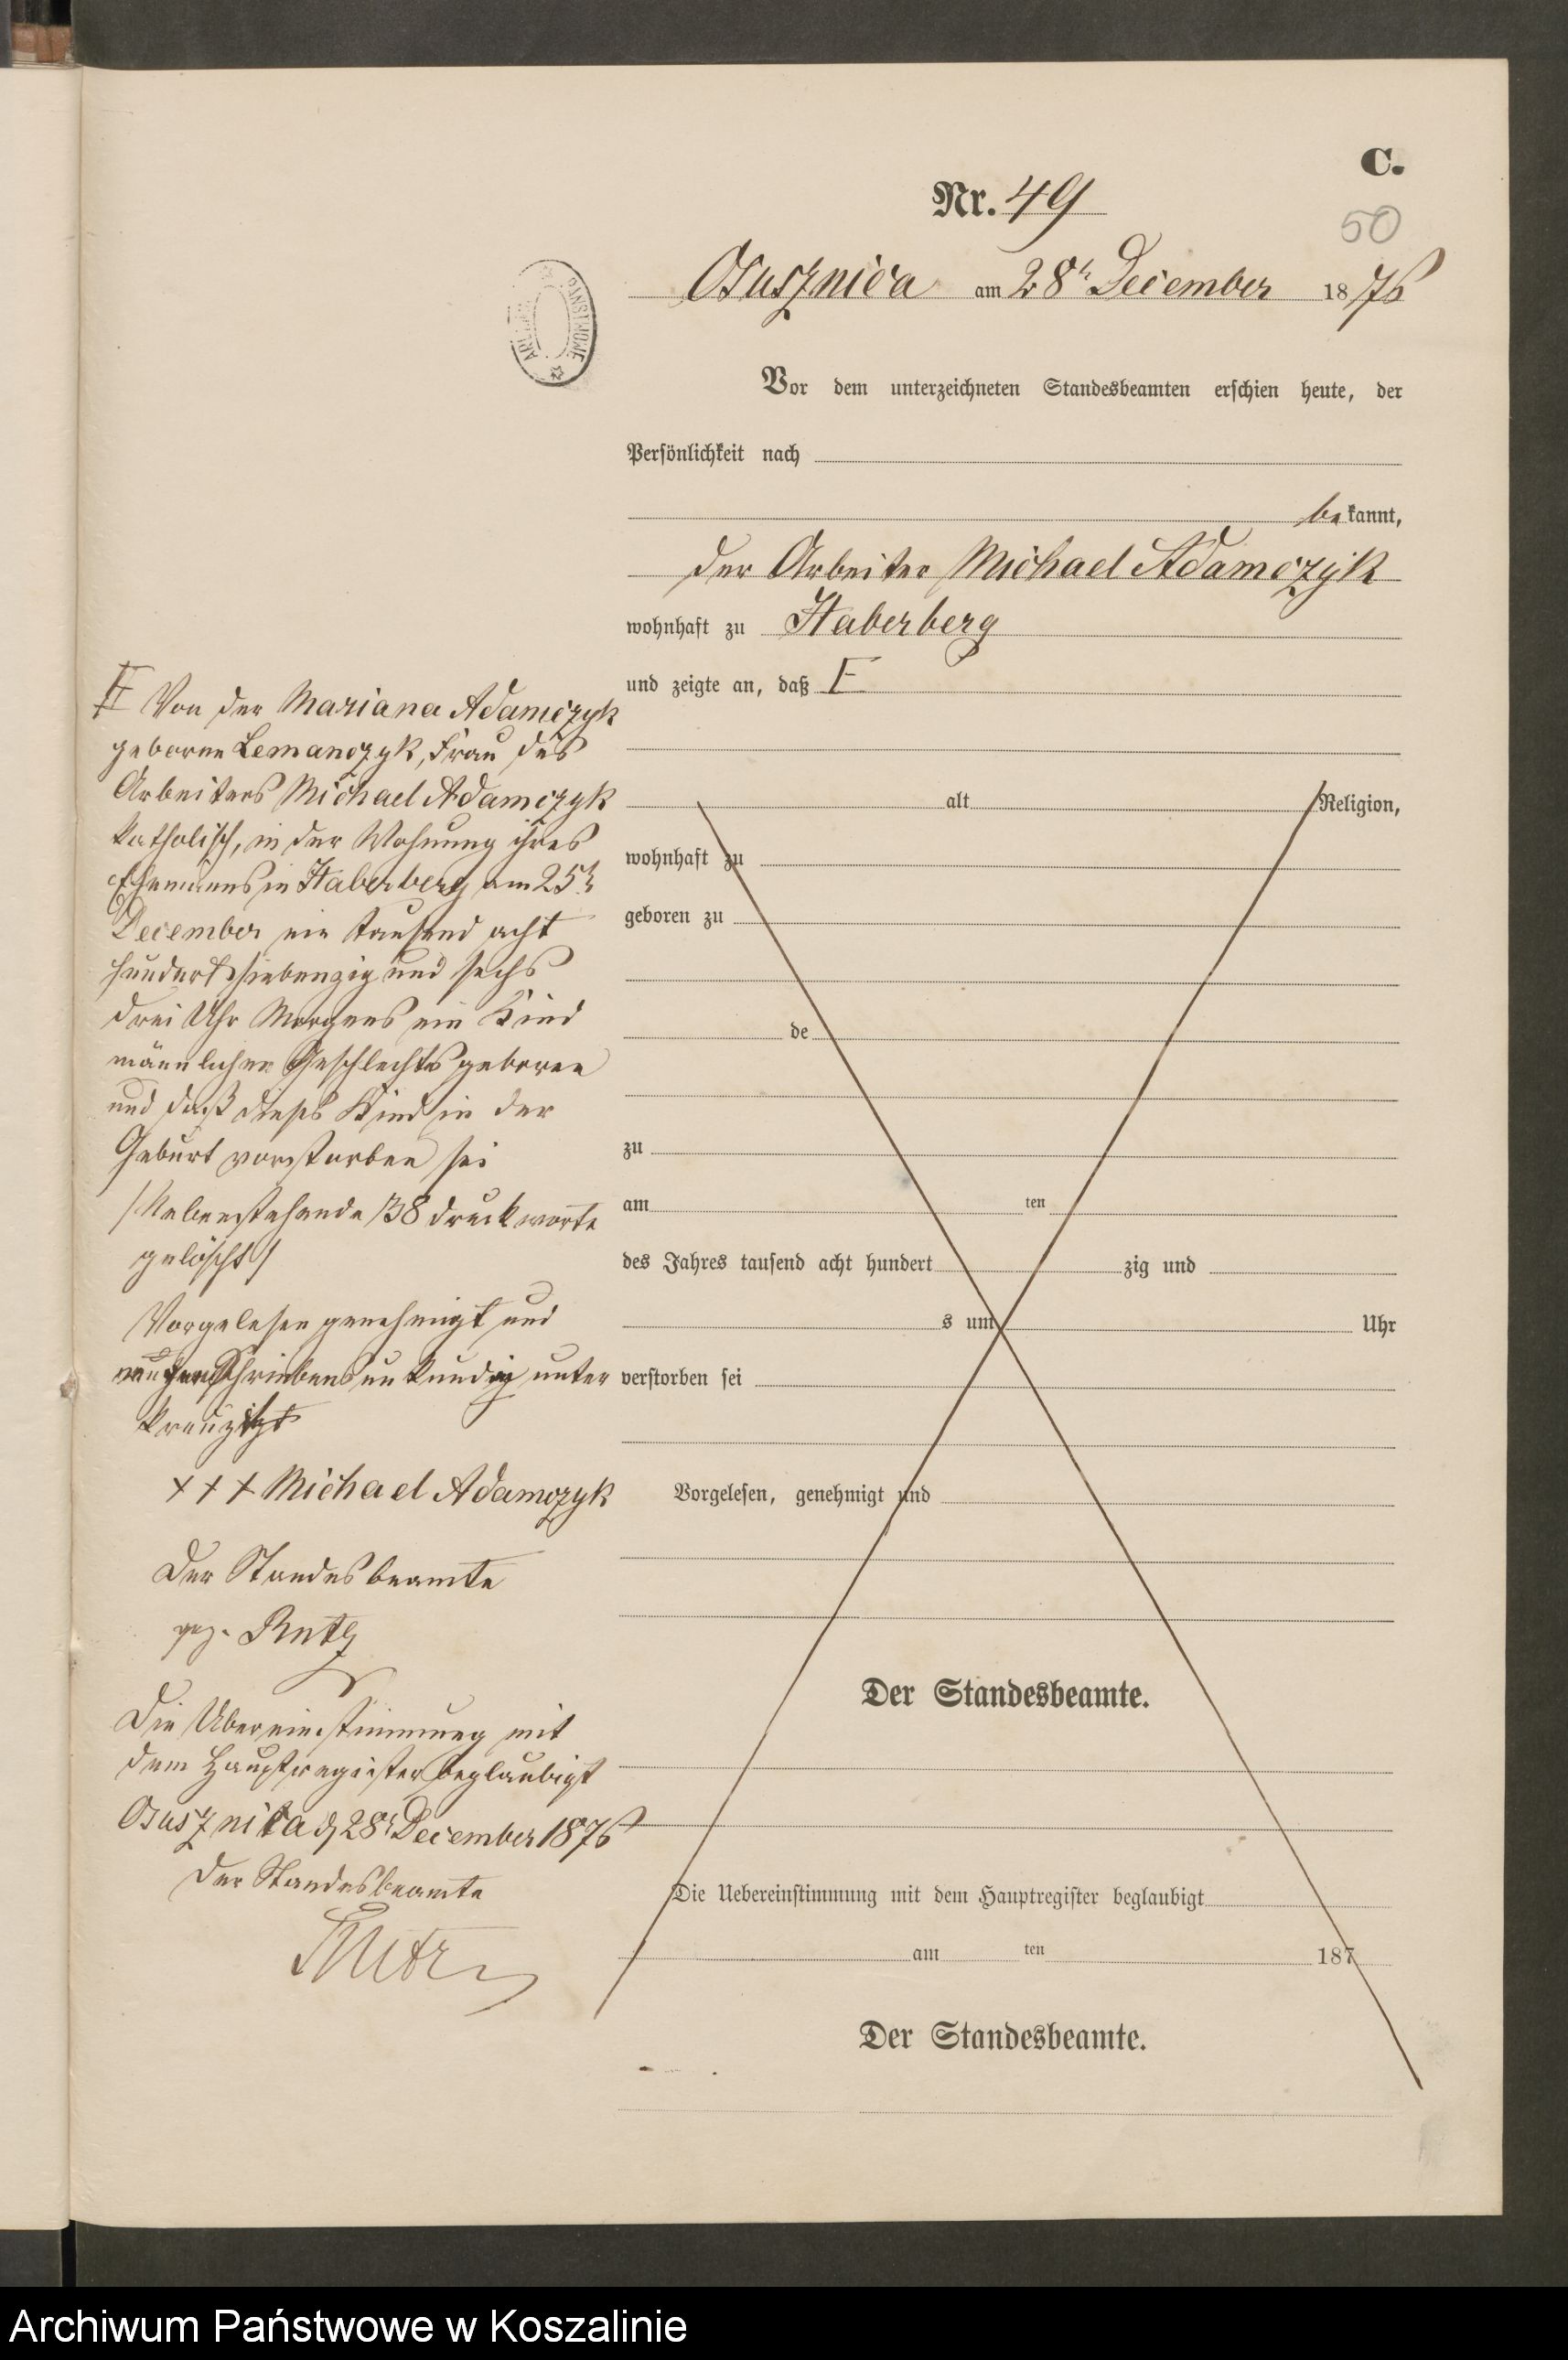 C.
Nr. 49
50
Osusznica am 28t December 1876
Vor dem unterzeichneten Standesbeamten erschien heute, der
Persönlichkeit nach
bekannt,
der Arbeiter Michael Adamczyk
wohnhaft zu Haberberg
und zeigte an, daß F
alt Religion,
wohnhaft zu
geboren zu
de
zu
am ten
des Jahres tausend acht hundert zig und
s um Uhr
verstorben sei
Vorgelesen, genehmigt und
Der Standesbeamte.
Die Uebereinstimmung mit dem Hauptregister beglaubigt
am ten 187
Der Standesbeamte.
F Von der Mariana Adamczyk
geborne Lemanczyk, Frau des
Arbeiters Michael Adamczyk
katholisch, in der Wohnung ihres
Ehemanns in Haberberg am 25t
December ein tausend acht
hundert siebenzig und sechs
drei Uhr Morgens ein Kind
männlichen Geschlechts geboren
und daß dieses Kind in der
Geburt verstorben sei
/Nebenstehende 38 druckworte
gelöscht/
Vorgelesen genehmigt und
Schreibens unkundig unter
kreuzt
+++ Michael Adamczyk
Der Standesbeamte
gez. Rutz
Die Übereinstimmung mit
dem Hauptregister beglaubigt
Osusznica d 28t December 1876
Der Standesbeamte
Rutz
PAŃSTWOWE
Archiwum Państwowe w Koszalinie